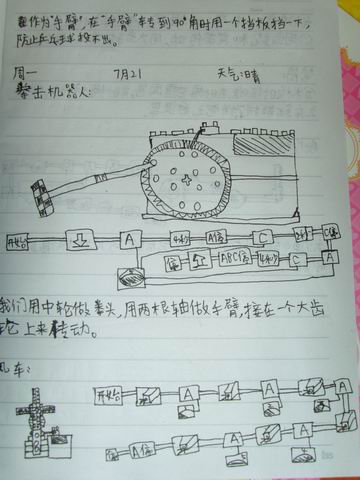 它作为"手臂",在"手臂"转到90°角时用一个挡板挡一下,
防止乒乓球投不出。
周一 7月21 天气:晴
拳击机器人:
开始 A 4秒 A停 C 2秒 C停
停 ABC停 4秒 C A
我们用中轮做拳头,用两根轴做手臂,接在一个大齿
轮上来转动。
风车:
开始 A A A
停 A停 A A